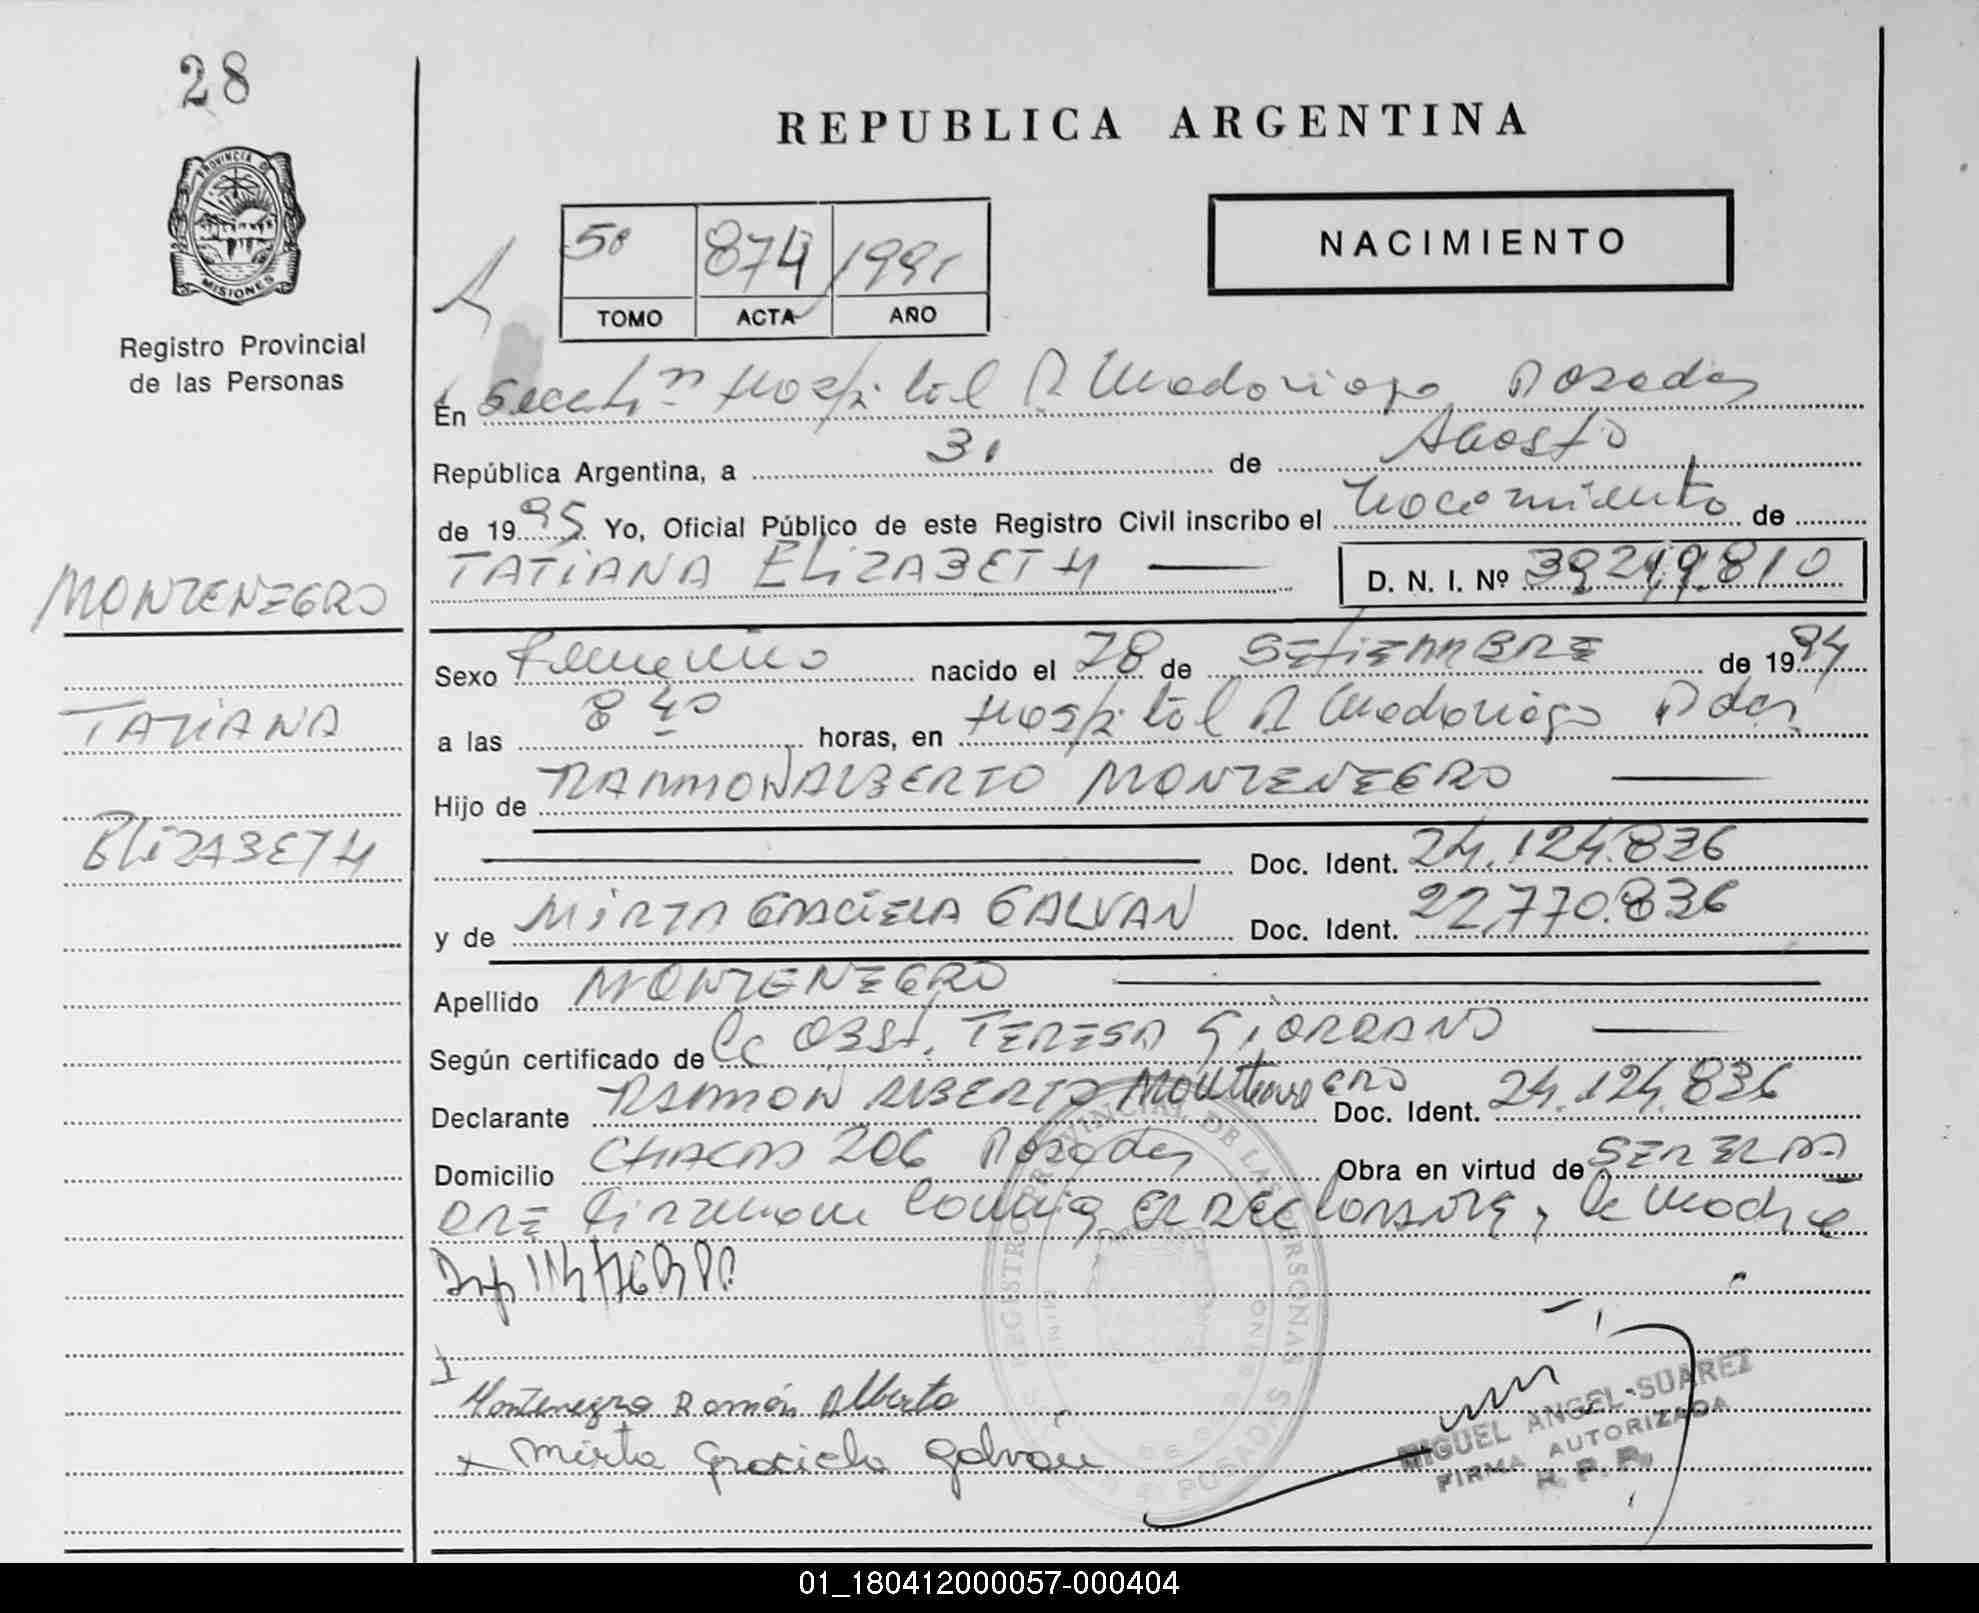 28
REPUBLICA ARGENTINA
PROVINCIA DE
MISIONES
Registro Provincial
de las Personas
5º 874 1995
TOMO ACTA AÑO
NACIMIENTO
En Secc Hospital R Madariaga Posadas
República Argentina, a 31 de Agosto
de 1995 Yo, Oficial Público de este Registro Civil inscribo el nacimiento de
TATIANA ELIZABETH D. N. I. Nº 39219810
MONTENEGRO
TATIANA
ELIZABETH
Sexo Femenino nacido el 28 de SETIEMBRE de 1994
a las 8 40 horas, en Hospital R Madariaga Pdas
Hijo de RAMMON ALBERTO MONTENEGRO
Doc. Ident. 24.124.836
y de MIRTA GRACIELA GALVAN Doc. Ident. 22.770.836
Apellido MONTENEGRO
Según certificado de la OBST. TERESA GIORDANO
Declarante RAMON ALBERTO Montenegro Doc. Ident. 24.124.836
Domicilio CHACO 206 Posadas Obra en virtud de SER EL PA
DRE firman conmig EL DECLARANTE y la madre
Montenegro Ramón Alberto
x Mirta Graciela Galván
REGISTRO PROVINCIAL DE LAS PERSONAS
POSADAS
MIGUEL ANGEL SUAREZ
FIRMA AUTORIZADA
R. P. P.
01_180412000057-000404